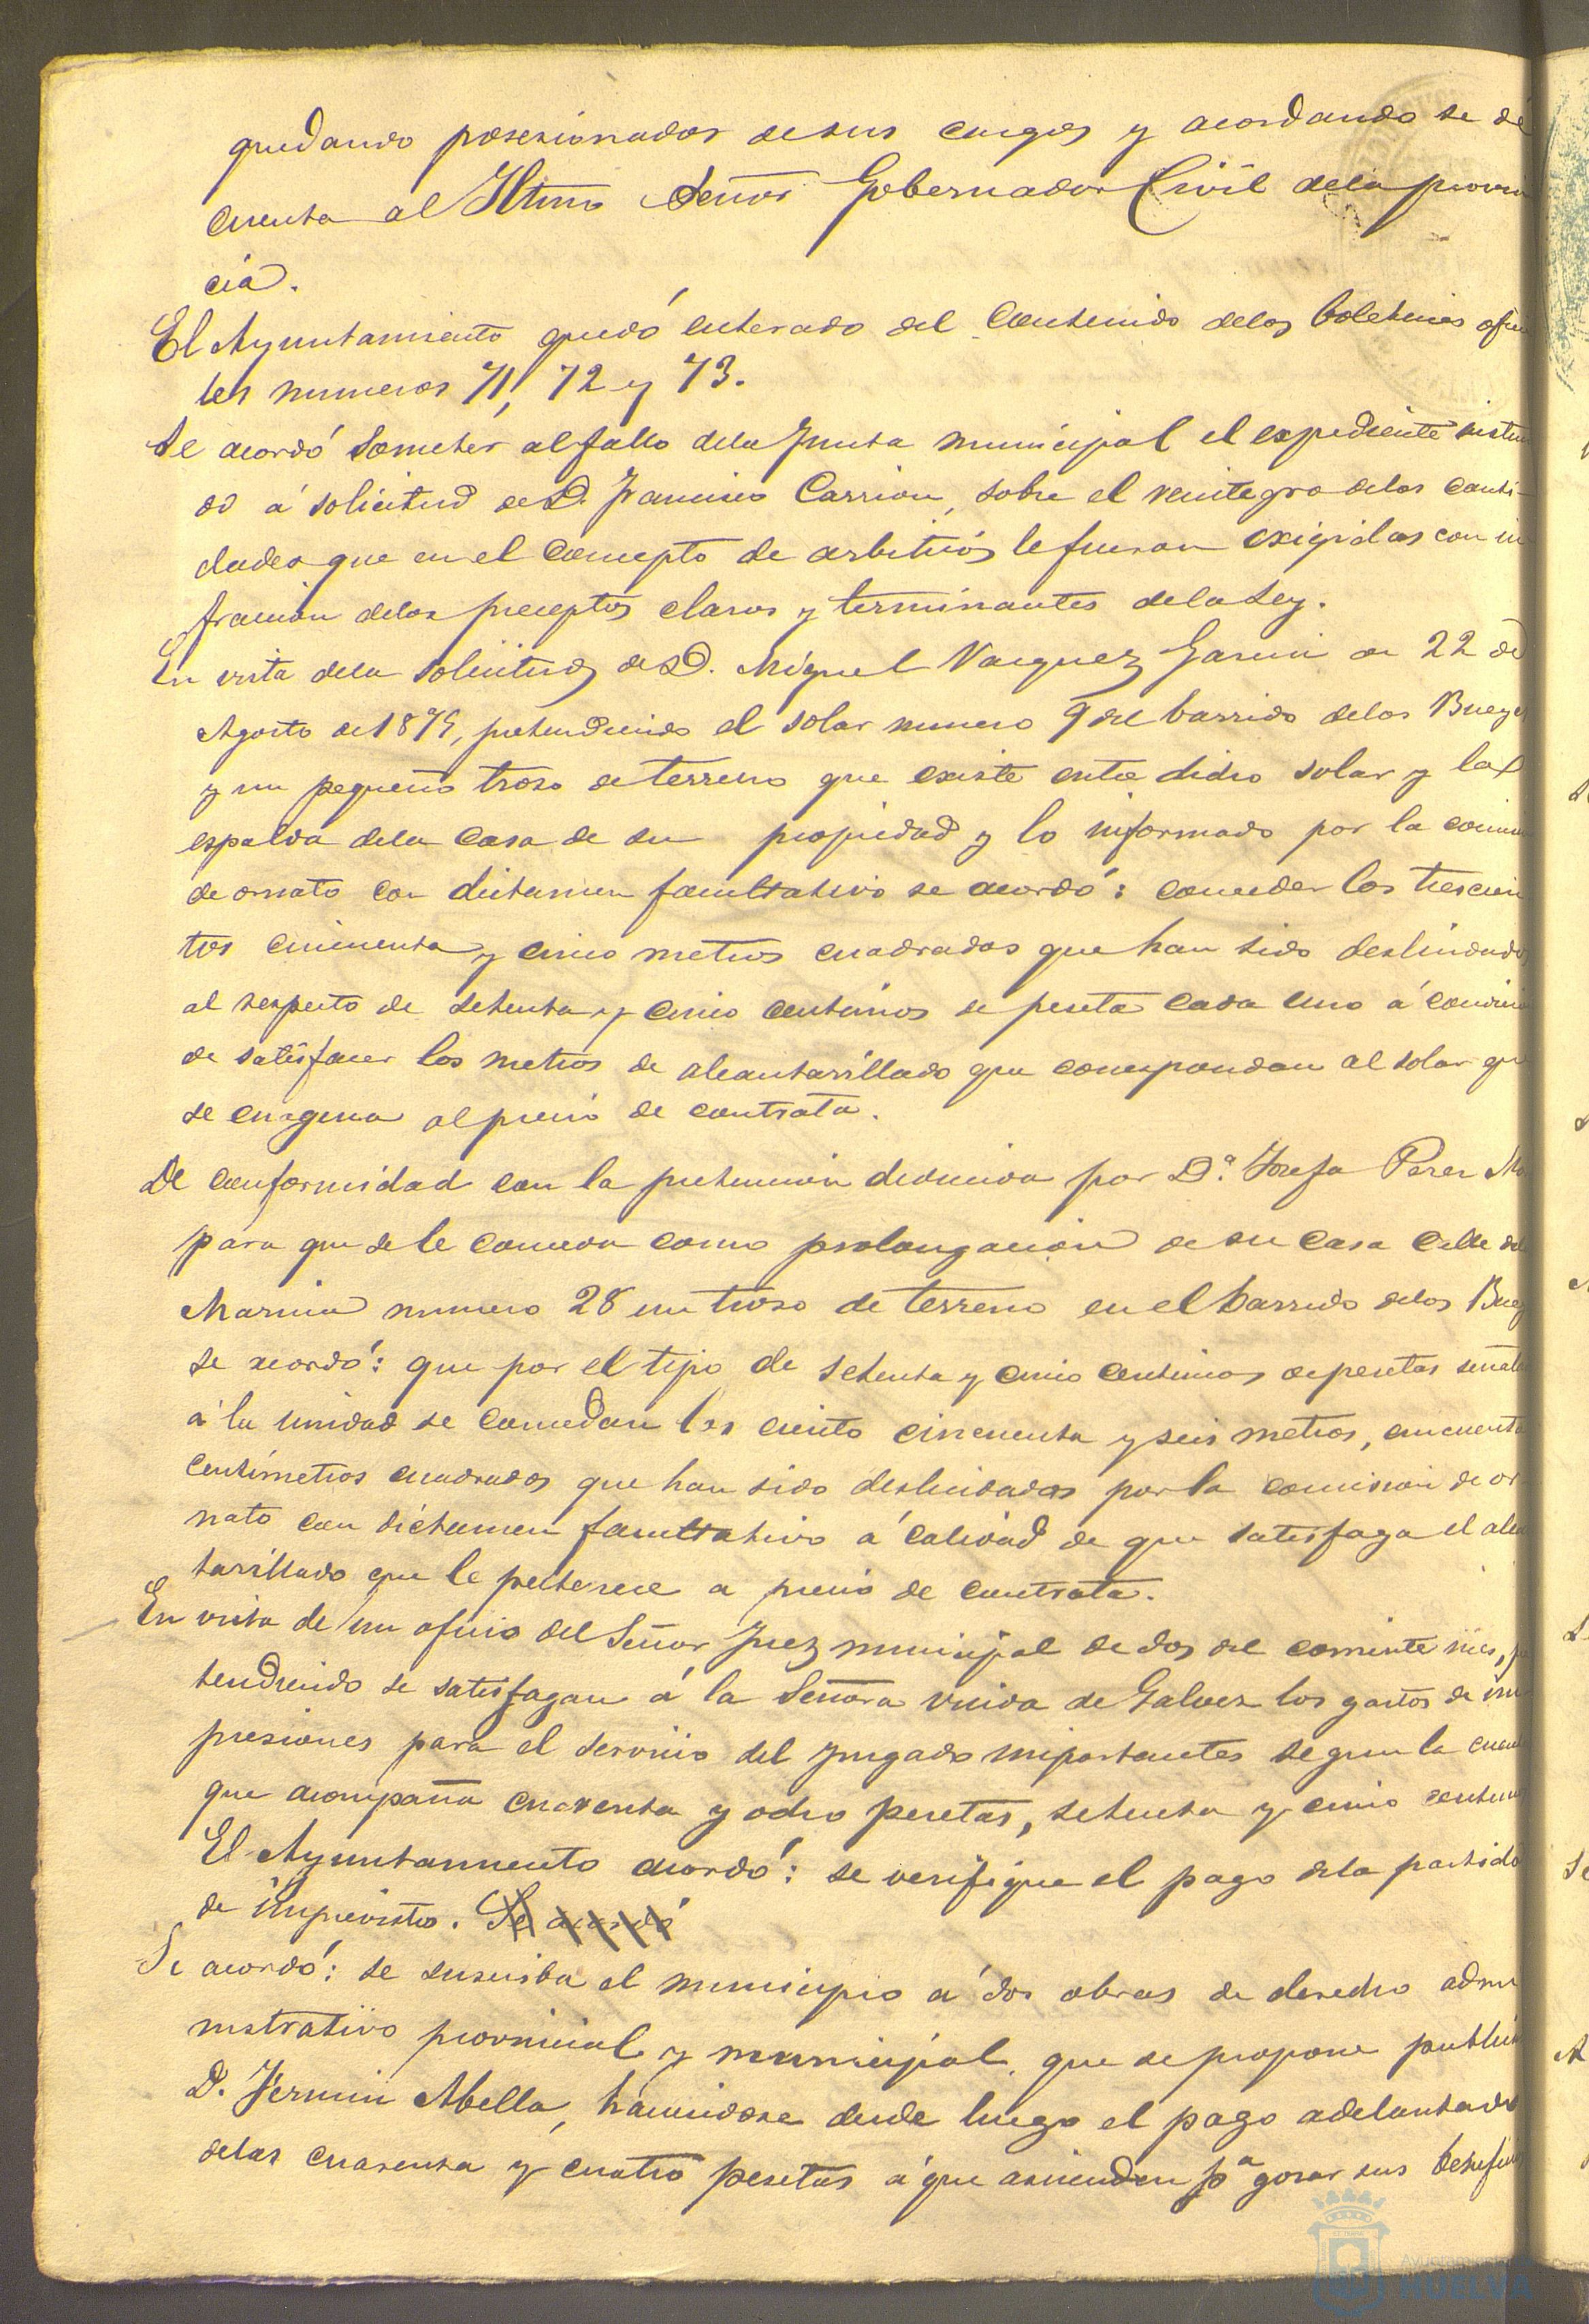 quedando posesionados de sus cargos y acordando se dé
cuenta al Iltmo Señor Gobernador Civil dela provin
cia.
El Ayuntamiento quedó enterado del contenido delos boletines ofici
les numeros 71, 72 y 73.
Se acordó someter al fallo dela Junta municipal el expediente instrui
do á solicitud de D. Francisco Carrion, sobre el reintegro delas canti-
dades que en el concepto de arbitrios le fueron exigidas con in
fracción delos preceptos claros y terminantes dela Ley.
En vista dela solicitud de D. Miguel Vazquez Garcia de 22 de
Agosto de 1879, pretendiendo el solar numero 9 del barrido delos Bueyes
y un pequeño troso de terreno que existe entre dicho solar y la
espalda dela casa de su propiedad y lo informado por la comision
de ornato con dictamen facultativo se acordó: conceder los trescien
tos cincuenta y cinco metros cuadrados que han sido deslindados
al respecto de setenta y cinco centimos de peseta cada uno á condicion
de satisfacer los metros de alcantarillado que correspondan al solar que
se enagena al precio de contrata.
De conformidad con la pretencion deducida por D.ª Josefa Perez
para que se le conceda como prolongacion de su casa calle del
Marina numero 28 un troso de terreno en el barrido delos Buey
se acordó: que por el tipo de setenta y cinco centimos de pesetas señala
á la unidad se concedan los ciento cincuenta y seis metros, cincuenta
centimetros cuadrados que han sido deslindados por la comision de or
nato con dictamen facultativo á calidad de que satisfaga el alcan
tarillado que le pertenece a precio de contrata.
En vista de un oficio del Señor Juez municipal de dos del corriente mes, pre
tendiendo se satisfagan á la Señora viuda de Galvez los gastos de im
presiones para el servicio del Jusgado importantes segun la cuenta
que acompaña cuarenta y ocho pesetas, setenta y cinco centimos
El Ayuntamiento acordó: se verifique el pago dela partida
de imprevistos. Se acordó
Se acordó: se suscriba el municipio á dos obras de derecho admi
nistrativo provincial y municipal, que se propone publicar
D. Fermin Abella, haciendose desde luego el pago adelantado
delas cuarenta y cuatro pesetas á que ascienden pª gosar sus beneficios
Ayuntamiento
HUELVA